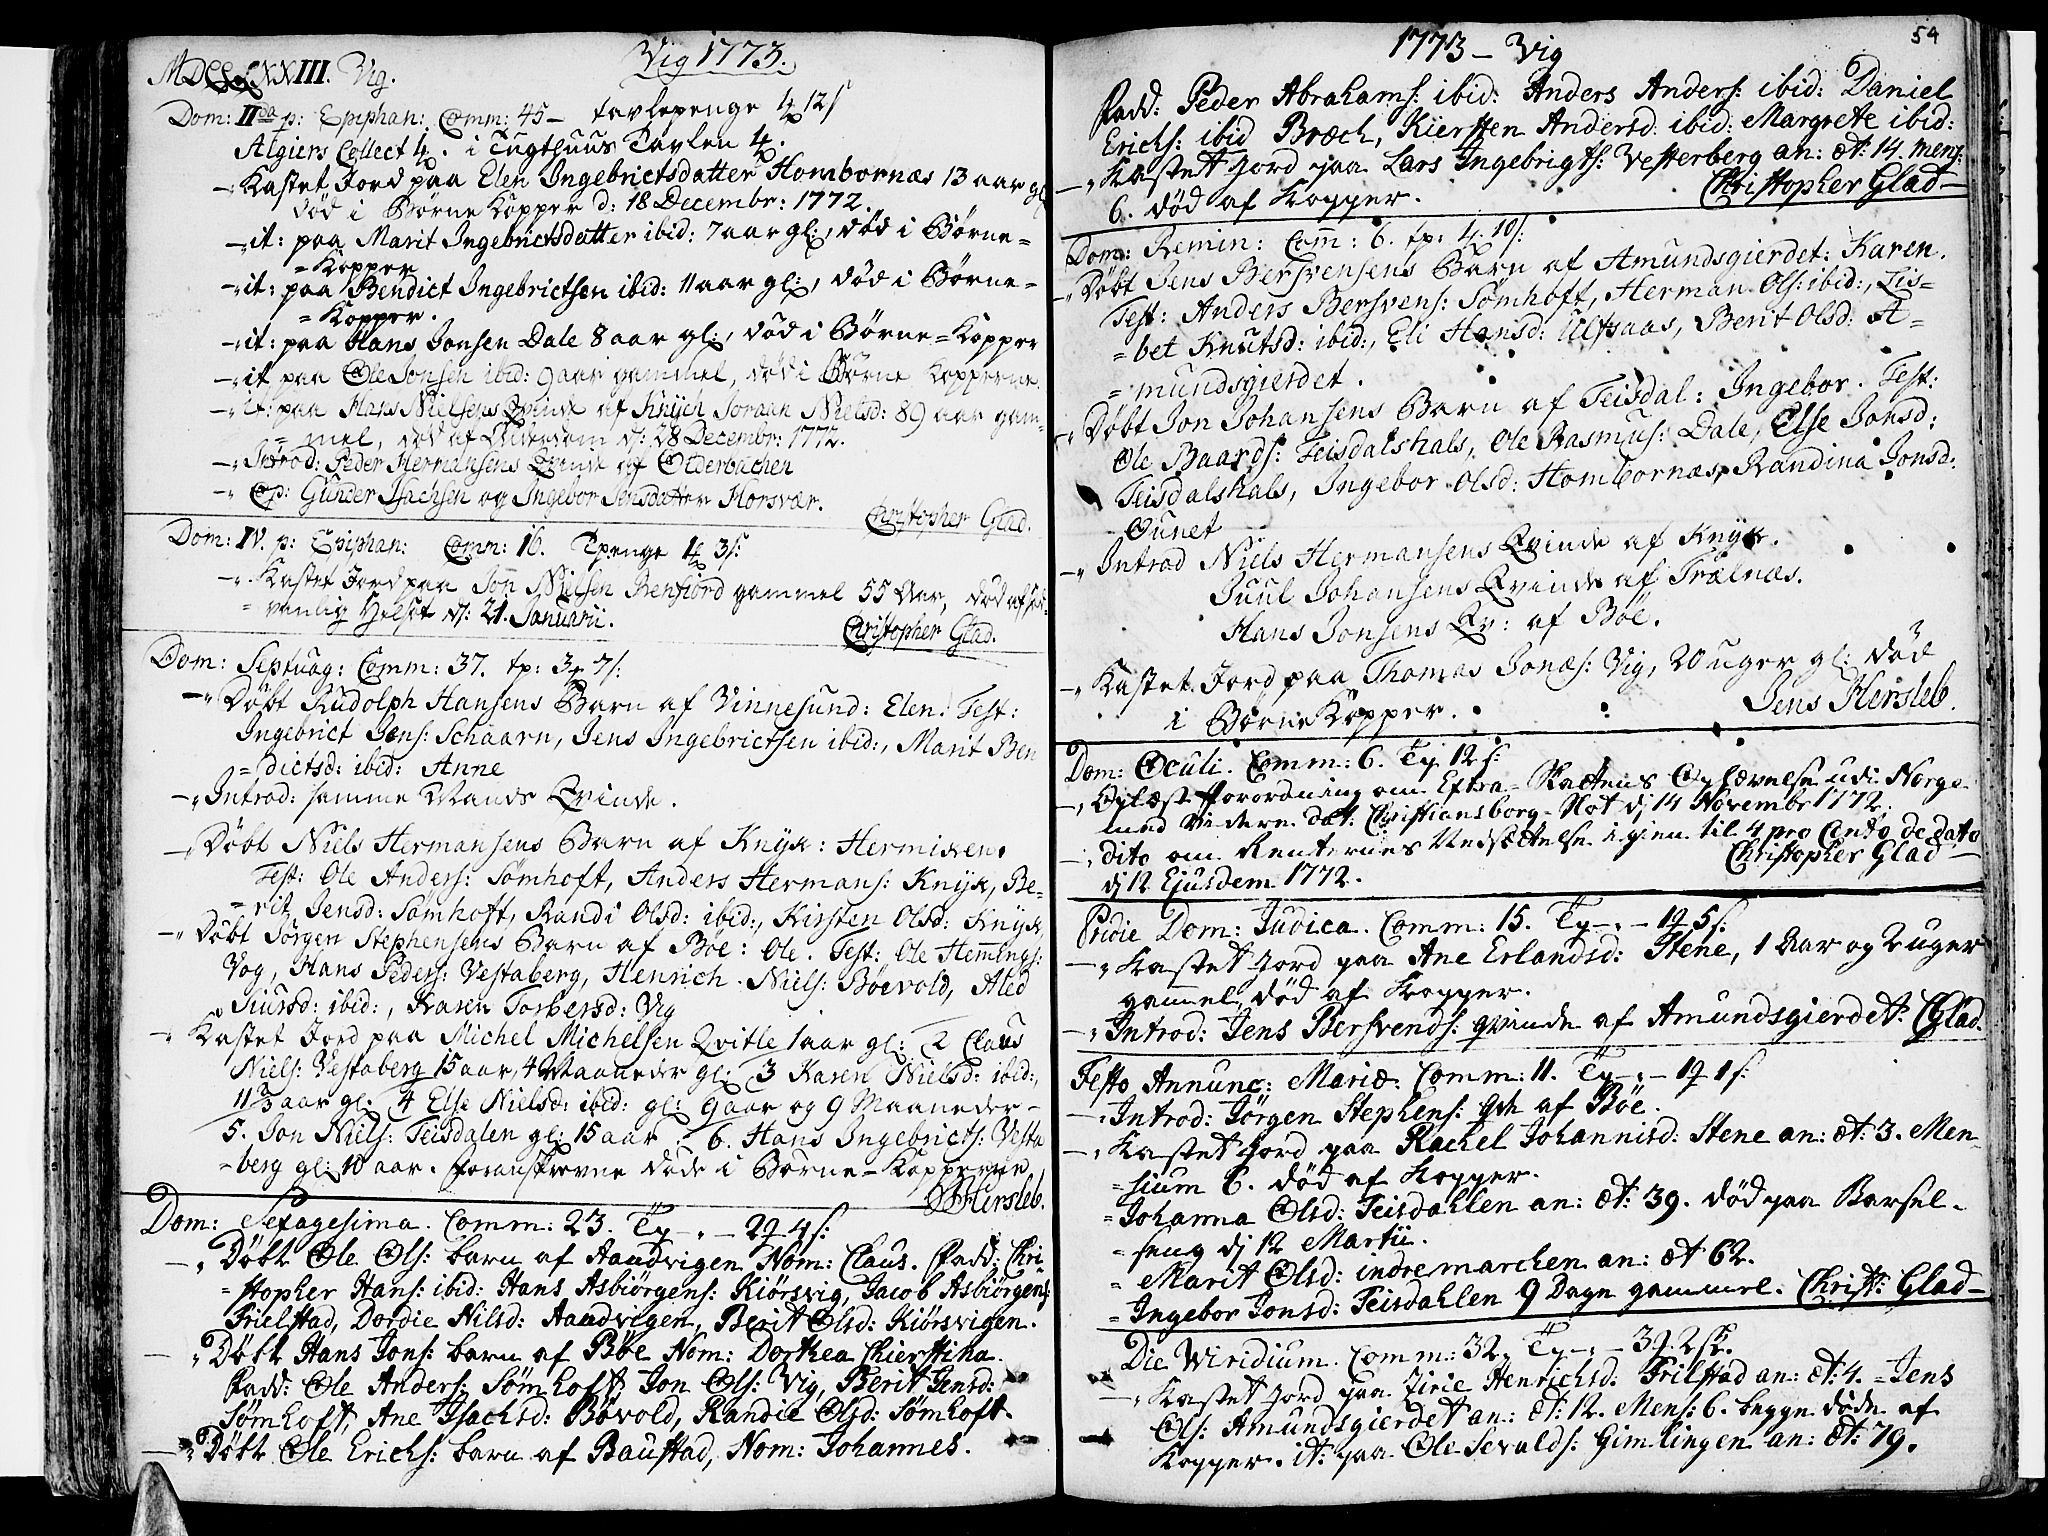 MDCCLXXIII. Vig.
Vig 1773.
Dom: IIda p: Epiphan: Comm: 45 – tavlepenge 4 12 s
Algiers Collect 4 . i Tugthuus Tavlen 4 .
–"Kastet Jord paa Elen Ingebrictsdatter Hombornæs 13 aar gl:
død i Børne Kopper d: 18 Decembr: 1772.
–"it: paa Marit Ingebrictsdatter ibid: 7 aar gl:, død i Børne=
=Kopper
–"it: paa Bendict Ingebrictsen ibid: 11 aar gl:, død i Børne=
=Kopper.
–"it: paa Hans Jonsen Dale 8 aar gl:, død i Børne=Kopper
–"it paa Ole Jonsen ibid: 9 aar gammel, død i Børne Kopperne
–"it: paa Hans Nielsens Qvinde af Knych Joraan Nielsd: 89 aar gam=
=mel, død af Alderdom d: 28 Decembr: 1772.
–"Introd: Peder Hermansens Qvinde af Olderbachen
–" Cop: Gunder Isachsen og Ingebor Jensdatter Horsvær.
Christopher Glad.
Dom: IV. p: Epiphan: Comm: 16. Tpenge 1 3 s:
–" Kastet Jord paa Jon Nielsen Renfiord gammel 55 Aar, død af
vanlig d: 21. Januarii.
Christopher Glad.
Dom: Septuag: Comm: 37. tp: 3 7 s:
–"Døbt Rudolph Hansens Barn af Vinnesund: Elen. Test:
Ingebrict Jens: Schaarn, Jens Ingebrictsen ibid:, Marit Ben
=dictsd: ibid: Anne
–"Introd: samme Mands Qvinde.
–"Døbt Niels Hermansens Barn af Knyx: Hermiken.
Test: Ole Anders: Sømhoft, Anders Hermans: Knyx, Be=
=rit Jensd: Sømhoft, Randi Olsd: ibid:, Kirsten Olsd: Knyx
–"Døbt Jørgen Stephensens Barn af Bøe: Ole. Test: Ole Hemings:
Vog, Hans Peders: Vestaberg, Henrich Niels: Bøevold, Aled
Siursd: ibid:, Karen Torbersd: Vig
–" Kastet Jord paa Michel Michelsen Qvitle 1 aar gl: 2 Claus
Niels: Vestaberg 15 aar, 4 Maaneder gl: 3 Karen Nielsd: ibid:,
11 3/ aar gl: 4 Else Nielsd: ibid: gl: 9 aar og 9 Maaneder –
5. Jon Niels: Teisdalen gl: 15 aar. 6. Hans Ingebricts: Vesta
=berg gl: 10 aar. foranskrevne døde i Børne–Kopperne
Hersleb.
Dom: Sexagesima. Comm: 23. Tp – " – 2 4 s:
–" Døbt Ole Ols: barn af Aandvigen Nom: Claus. Fadd: Chri=
=stopher Hans: ibid: Hans Asbiørgens: Kiørsvig, Jacob Asbiørgens:
Trielstad, Dordie Nilsd: Aandvigen, Berit Olsd: Kiørsvigen.
–" Døbt Hans Jons: barn af Bøe Nom: Dorthea Chierstina.
Fadd: Ole Anders: Sømhoft, Jon Ols: Vig, Berit Jensd:
Sømhoft, Ane Isachsd: Bøvold, Randie Olsd: Sømhoft.
–" Døbt Ole Erichs: barn af Baustad, Nom: Johannes.
1773 – Vig
54
Fadd: Peder Abrahams: ibid: Anders Anders: ibid: Daniel
Erichs: ibid Broech, Kiersten Andersd: ibid: Margrete ibid:
–" Kastet Jord paa Lars Ingebrigts: Vesterberg an: æt: 14 mens:
6. død af Kopper.
Christopher Glad –
Dom: Remin: Comm: 6. tp: 4 10 s:
–"Døbt Jens Bersvensens Barn af Amundsgierdet: Karen.
Test: Anders Bersvens: Sømhoft, Herman Ols: ibid:, Lis=
=bet Knutsd: ibid:, Eli Hansd: Ulfsaas, Berit Olsd: A=
=mundsgierdet.
–"Døbt Jon Johansens Barn af Teisdal: Ingebor. Test:
Ole Baards: Teisdalshals, Ole Rasmus: Dale, Else Jonsd:
Teisdalshals, Ingebor Olsd: Hombornæs, Randina Jonsd:
Ounet
–"Introd Niels Hermansens Qvinde af Knyx.
Juul Johansens Qvinde af Trælnæs.
Hans Jonsens Qv: af Bøe.
–" Kastet Jord paa Thomas Jonæs: Vig, 20 uger gl: død
i Børne Kopper.
Jens Hersleb.
Dom: Oculi. Comm: 6. Tp. 12 s:
–" Oplæst forordning om Extra–Skattens Ophævelse udi Norge
med videre dat: Christiansborg–Slot dj 14 Novembr 1772.
–" dito om Renternes Nedsættelse igien til 4 pro Cento de dato
dj 12 Ejusdem 1772.
Christopher Glad –
Pridie Dom: Judica. Comm: 15. Tp – " – 1 5 s:
–" Kastet Jord paa Ane Erlandsd: Stene, 1 Aar og 2 uger
gammel, død af Kopper.
–" Introd: Jens Bersvends: qvinde af Amundsgierdet. CGlad.
Festo Annunc: Mariæ. Comm: 11. Tp – " – 1 1 s:
–" Introd: Jørgen Stephens: Qv af Bøe.
–" Kastet Jord paa Rachel Johannisd: Stene an: æt: 3. Men
=sium 6. død af Kopper.
=Johanna Olsd: Teisdahlen an: æt: 39. død paa Barsel=
=seng dj 12 Martii.
= Marit Olsd: indre marchen an: æt 62.
=Ingebor Jonsd: Teisdahlen 9 Dage gammel. Christ: Glad –
Die Viridium. Comm: 32. Tp – " – 3 2 s:
–" Kastet Jord paa Zirie Henrichsd: Trilstad an: æt: 4. = Jens
Ols: Amundsgierdet an: æt: 12. Mens: 6. begge døde af
Kopper. it: paa Ole Sevalds: Gimlingen an: æt: 79.